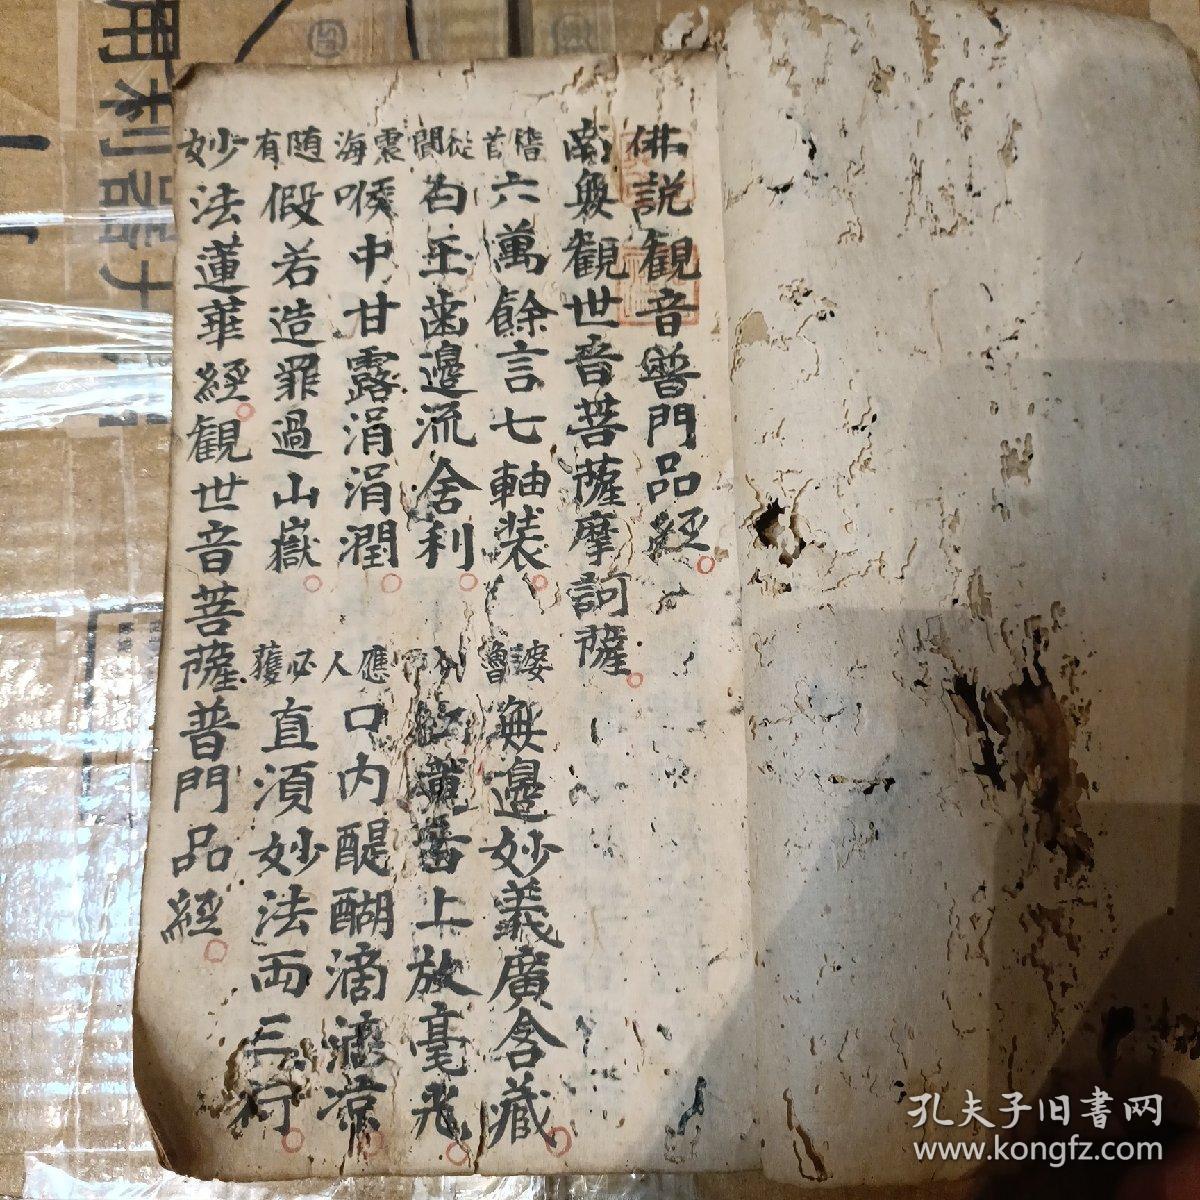 佛説觀音普門品經
南無觀世音菩薩摩訶薩
稽首六萬餘言七軸裝 無邊妙義廣含藏
白玉齒邊流舍利 紅蓮舌上放毫光
喉中甘露涓涓潤 口内醍醐滴滴凉
假若造罪過山嶽 必獲直須妙法兩三行
随有
妙法蓮華經觀世音菩薩普門品經
孔夫子旧書网
www.kongfz.com